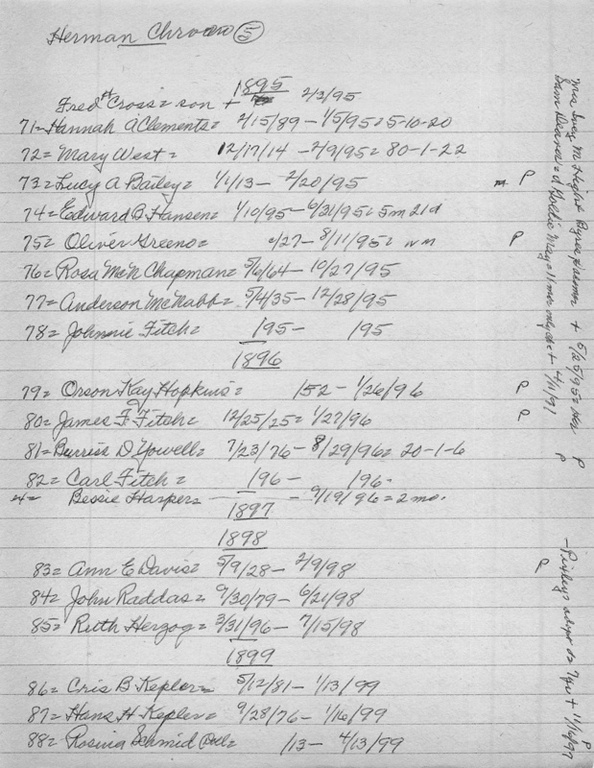 Herman Chrono (5)
1895
Fred Cross = son + 2/3/95
71= Hannah A Clements = 2/15/89 - 1/5/95 = 5-10-20
72= Mary West = 12/17/14 - 2/9/95 = 80-1-22
73= Lucy A Bailey = 1/1/13 - 2/20/95 P
74= Edward B Hansen = 1/10/95 - 6/31/95 = 5m 21d
75= Oliver Greeno = /27 - 8/11/95 = nm P
76= Rosa McN Chapman = 5/6/64 - 10/27/95
77= Anderson McNabb = 5/4/35 - 12/28/95
78= Johnnie Fitch = /95 - /95
1896
79= Orson Kay Hopkins = /52 - 1/26/96 P
80= James F Fitch = 12/25/25 = 1/27/96 P
81= Burriss D Yowell = 7/23/76 - 8/29/96 = 20-1-6
82= Carl Fitch = /96 - /96-
Bessie Harper - - 9/19/96 = 2 mo.
1897
1898
83= Ann E Davis = 5/9/28 - 2/9/98 P
84= John Raddas = 9/30/79 - 6/21/98
85= Ruth Herzog = 3/31/96 - 7/15/98
1899
86= Cris B Kepler = 5/12/81 - 1/13/99
87= Hans H Kepler = 9/28/76 - 1/16/99
88= Rosina Schmid = /13 - 4/13/99
Mrs Lucy M Height + 5/25/95 = P
d Goldie May = 11 mo only + 4/11/91 P
+ 11/16/97 P